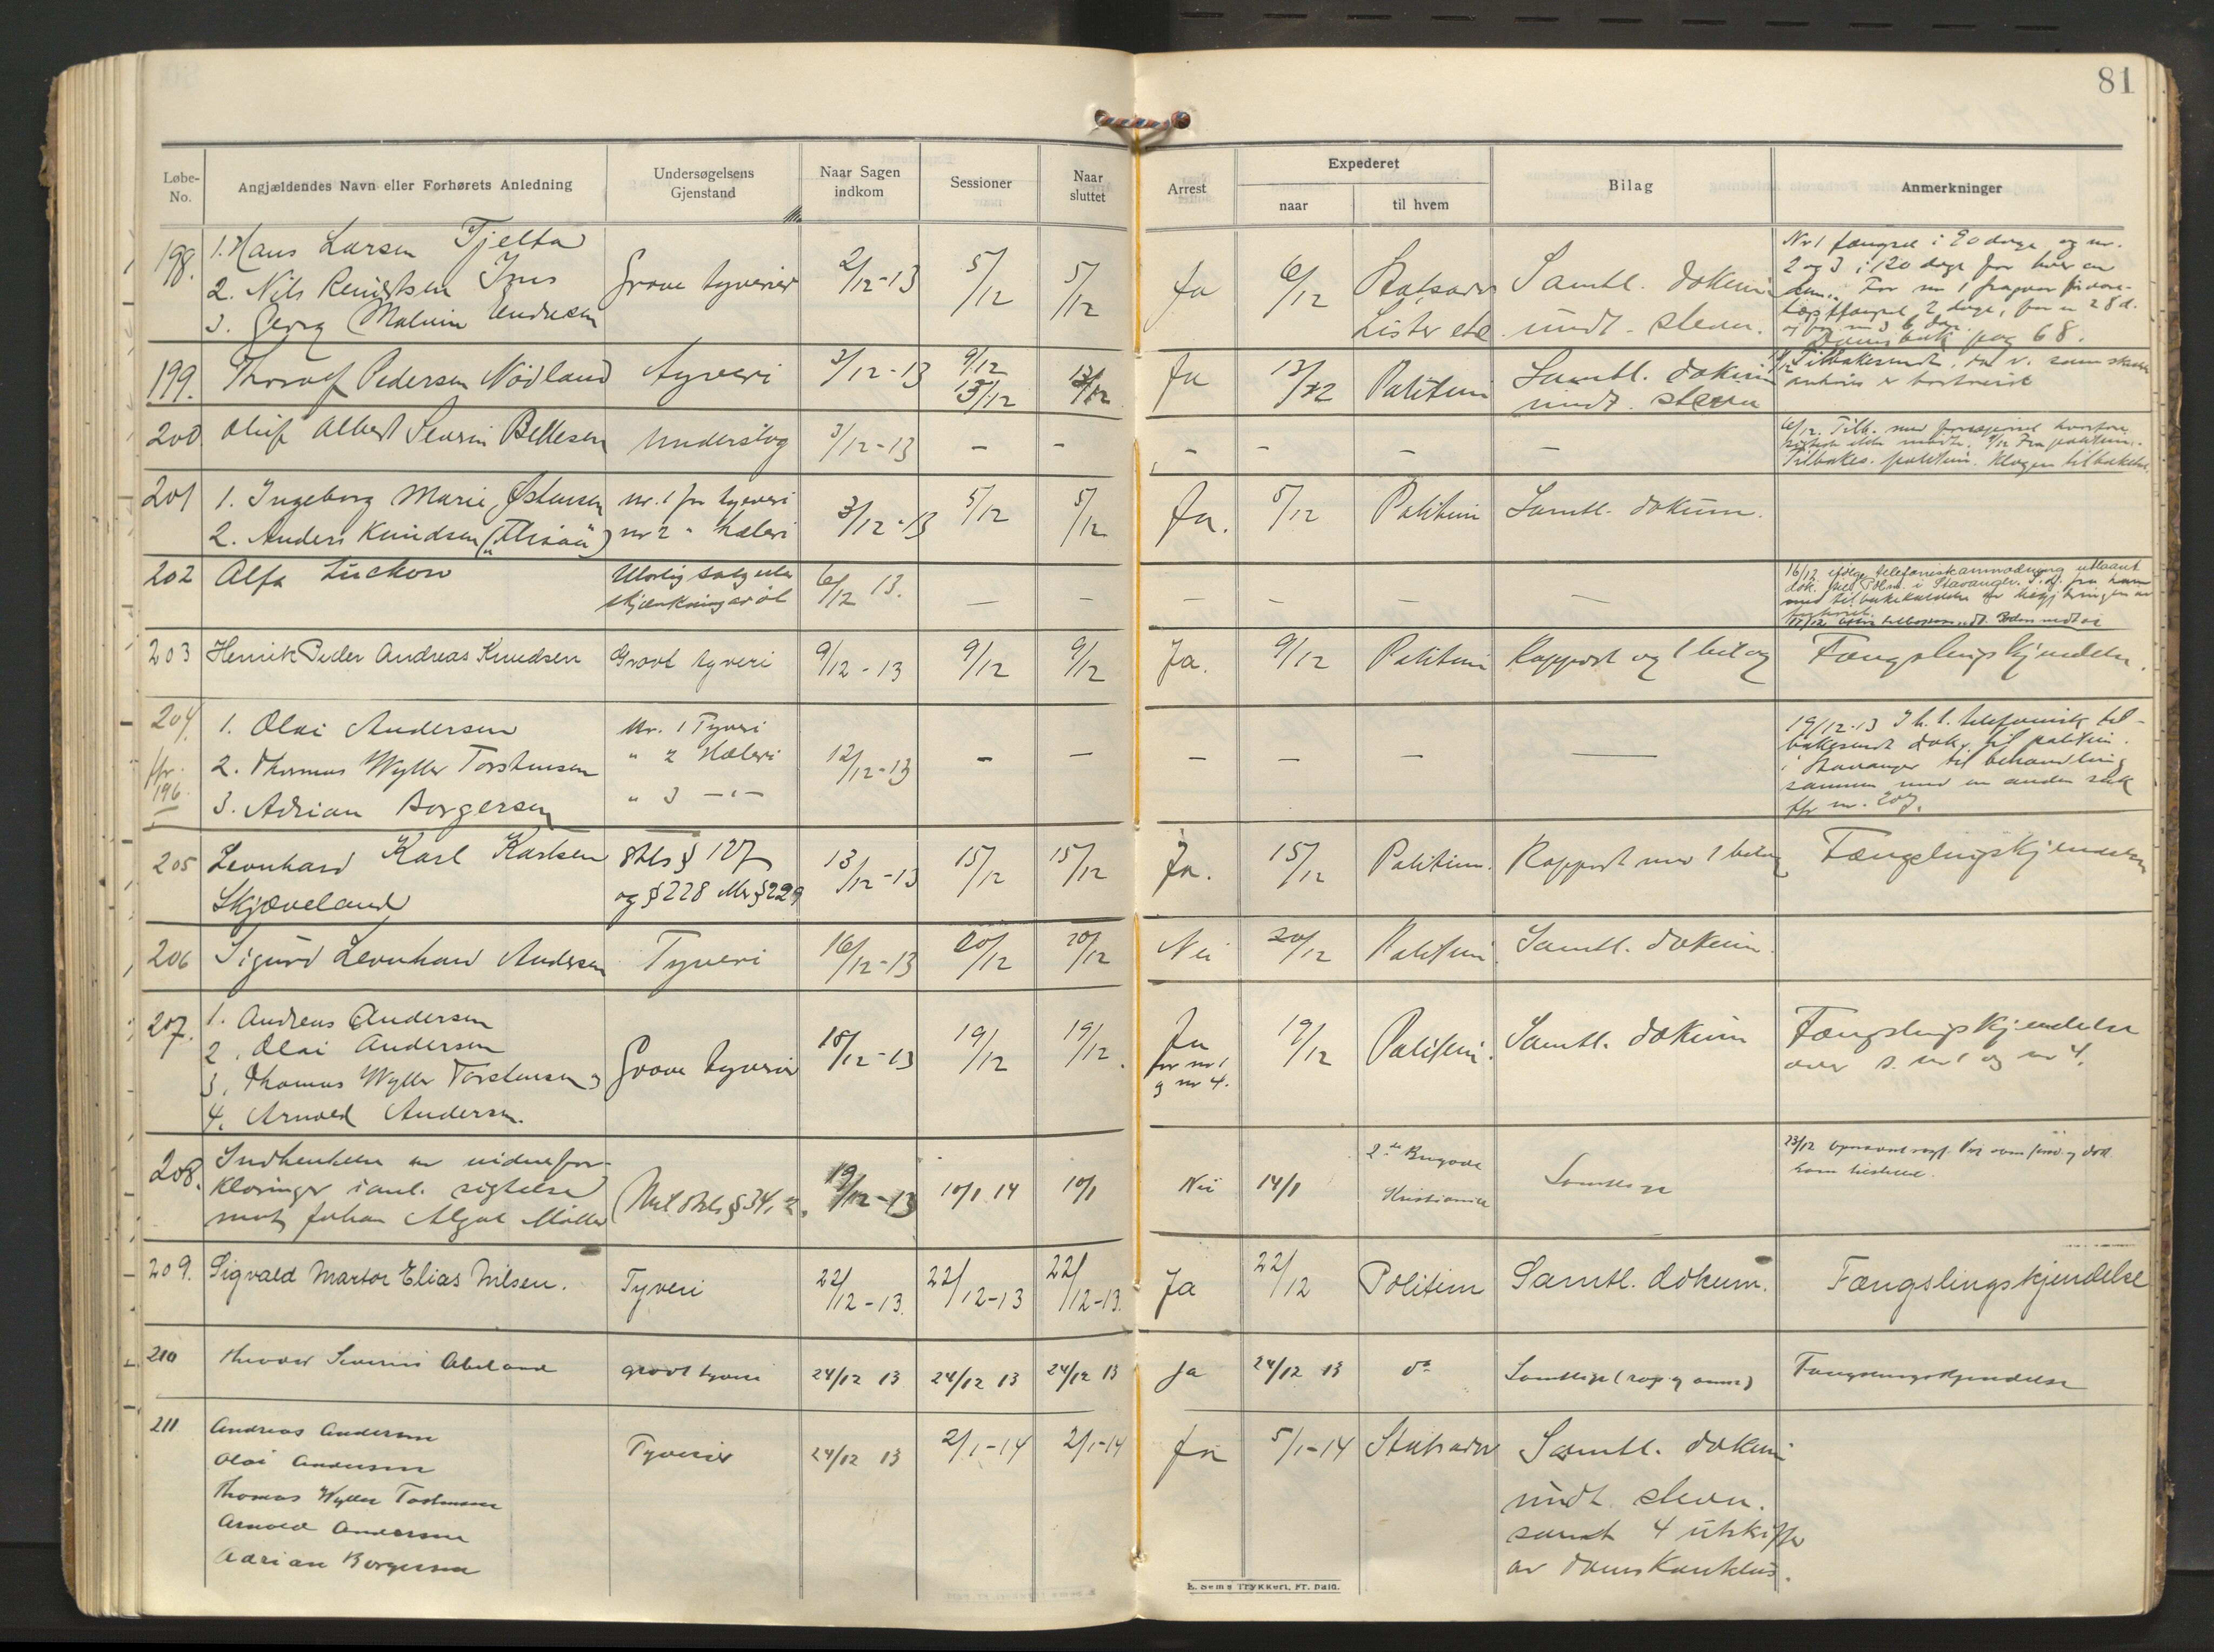 81
Løbe-No. Angjældendes Navn eller Forhørets Anledning Undersøgelsens Gjenstand Naar Sagen indkom Sessioner Naar sluttet Arrest Expederet naar til hvem Bilag Anmerkninger
198. 1. Hans Larsen Tjelta Grove tyverier 2/12-13 5/12 5/12 Ja 6/12 Statsadv. Samtl. dokum
2. Nils Lister etc. undt. stevn.
3. Georg Malvin Endresen
Nr 1 fængsel i 90 dage og nr.
2 og 3 i 120 dage for hver av
dem. For nr 1 fragaar
2 dage, for nr 2 8 d.
og for nr 3 6 dage.
Domsbok pag 68.
199. Thoralf Pedersen Nødland tyveri 3/12-13 9/12 13/12 13/12 Ja 13/12 Politim Samtl. dokum
undt. stevn
Tilbakesendt, da
200 Oluf Albert Severin Bertelsen Underslag 3/12-13 - - - - - -
6/12. Tilb. med
Tilbakes. politim. Klagen tilbakek.
201 1. Ingeborg Marie Østensen nr. 1 for tyveri 3/12-13 5/12 5/12 Ja. 5/12 Politim Samtl. dokum.
2. Anders Knudsen nr 2 " hæleri
202 Alfa Lückow Ulovlig salg eller 6/12 13. - - - - - -
skjænkning av øl
16/12 ifølge telefonisk anmodning utlaant
dok. til Polm i Stavanger.
203 Henrik Peder Andreas Knudsen Grovt tyveri 9/12-13 9/12 9/12 Ja. 9/12 Politim Rapport og 1 bilag Fængslingskjendelse.
204. 1. Olai Andersen Nr. 1 Tyveri
2. Thomas Wyller Torstensen " 2 Hæleri 12/12-13 - - - - - -
jfr. 196 3. Adrian Borgersen " 3 -"-
19/12-13 I h. t. telefonisk til-
bakesendt dok. til politim.
i Stavanger til behandling
sammen med en anden sak
jfr nr. 207.
205 Leonhard Karl Karlsen Strls § 127 13/12-13 15/12 15/12 Ja. 15/12 Politim. Rapport med 1 bilag Fængslingskjendelse
Skjæveland og § 228 jfr § 229
206 Sigurd Leonhard Andersen Tyveri 16/12-13 20/12 20/12 Nei 20/12 Politim. Samtl. dokum.
207. 1. Andreas Andersen Grove tyverier 18/12-13 19/12 19/12. Ja 19/12 Politim. Samtl. dokum Fængslingskjendelse
2. Olai Andersen for nr 1 over s. nr 1 og nr 4.
3. Thomas Wyller Torstensen og nr 4.
4. Arnold Andersen.
208. Indhentelse av vidnefor- 2den Brigade
klaringer i anl. sigtelse Mil. strls § 34, 2. 19/12-13 10/1 14 10/1 Nei 14/1 Kristiania Samtlige
mot Johan Møller
23/12
209. Sigvald Martor Elias Nilsen. Tyveri 22/12-13. 22/12-13 22/12-13. Ja 22/12 Politim Samtl. dokum. Fængslingskjendelse
210 Theodor Severin Abeland grovt tyveri 24/12 13 24/12 13 24/12 13 Ja 24/12 13 do Samtlige Fængslingskjendelse
211 Andreas Andersen Tyverier 24/12 13 2/1-14 2/1-14 Ja 5/1-14 Statsadv Samtl. dokum
Olai Andersen undt. stevn.
Thomas Wyller Torstensen samt 4 utskrifter
Arnold Andersen av domskonklus.
Adrian Borgersen
E. Sems Trykkeri, Fr. hald.